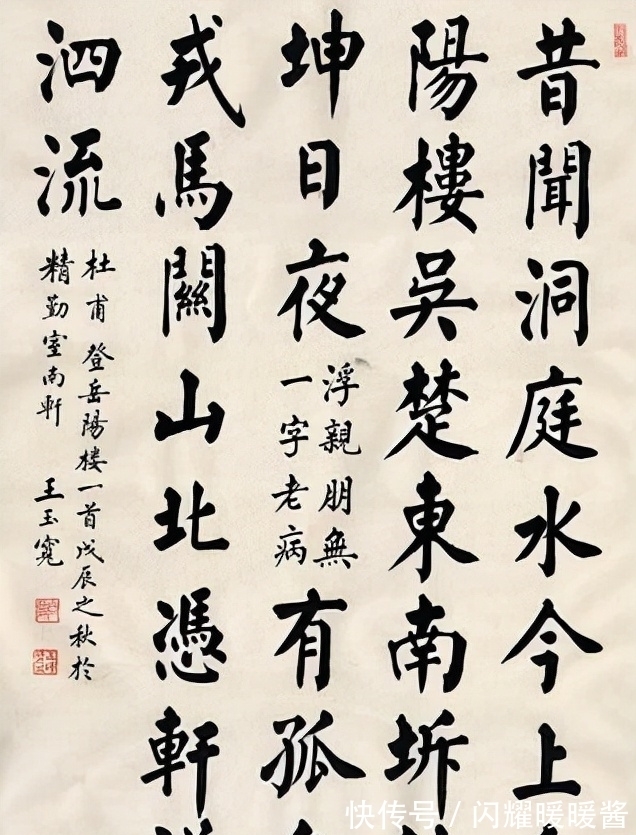 昔聞洞庭水今上
陽樓吳楚東南坼
坤日夜
浮親朋無
一字老病
有孤
戎馬關山北憑軒
泗流
杜甫登岳陽楼一首戊辰之秋於
精勤室南軒 王玉寬
快传号 / 闪耀暖暖酱